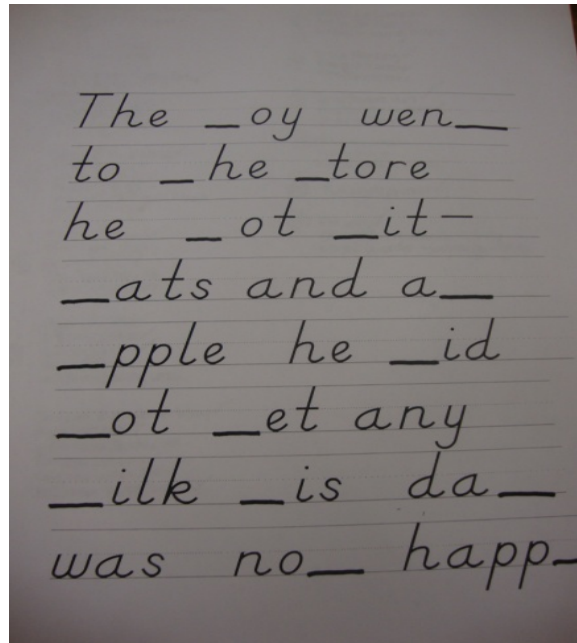 The _oy wen_
to _he _tore
he _ot _it-
_ats and a_
_pple he _id
_ot _et any
_ilk _is da_
was no_ happ_